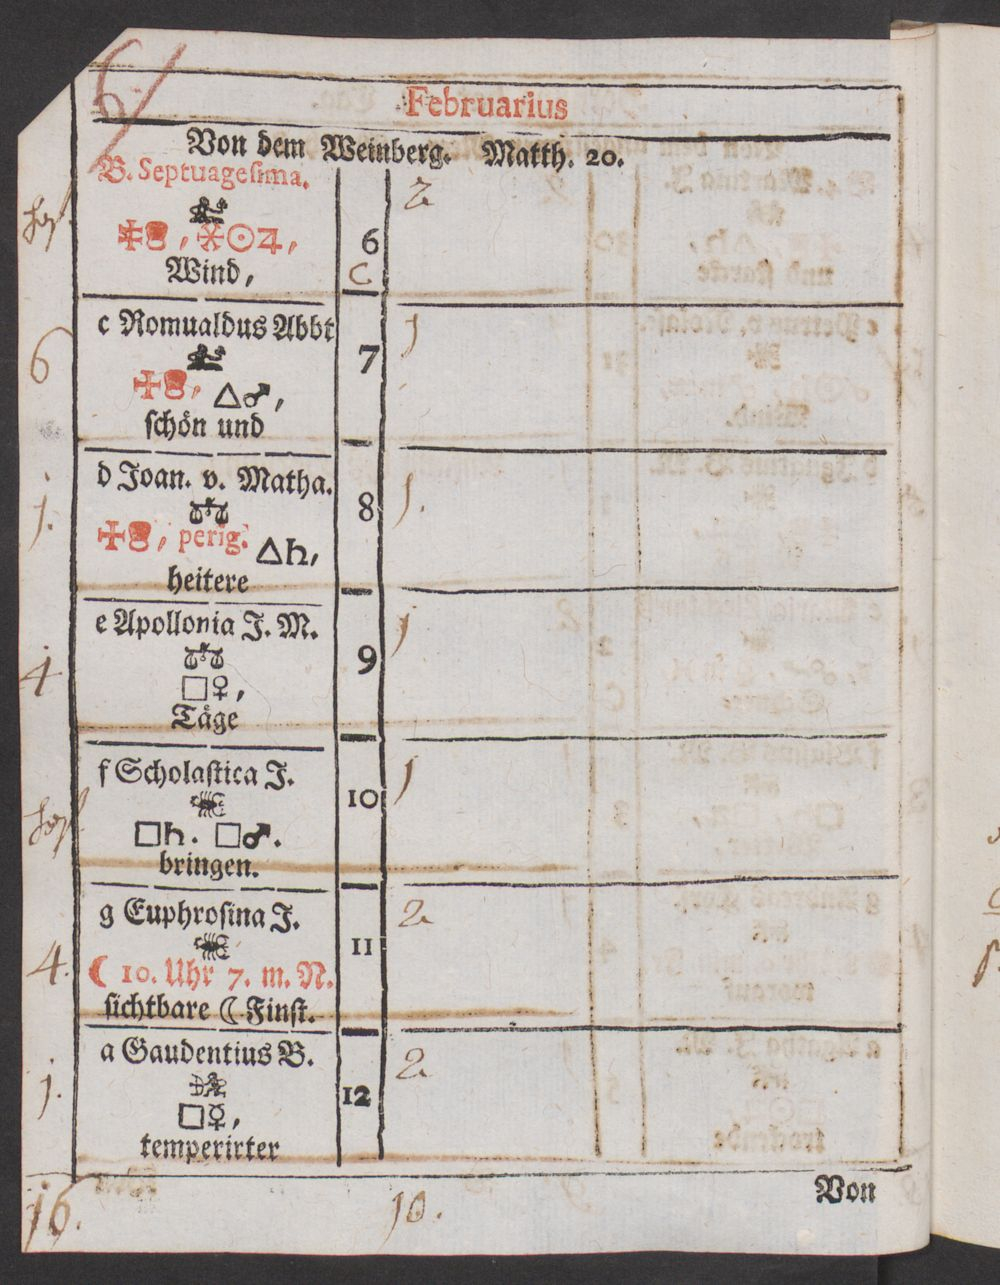 6
Februarius
Von dem Weinberg. Matth. 20.
B. Septuagesima.
2
✠ , ⚹☉♃,
6
Wind,
C
c Romualdus Abbt
1
6
7
✠ , △♂,
schön und
d Joan. v. Matha.
1.
1.
8
✠ , perig. △♄,
heitere
e Apollonia J. M.
1
4
9
□♀,
Täge
f Scholastica J.
1
10
□♄. □♂.
bringen.
g Euphrosina J.
2
11
4.
☾ 10. Uhr 7. m. N.
sichtbare ☾ Finst.
a Gaudentius B.
2
1.
12
□☿,
temperirter
Von
16.
10.